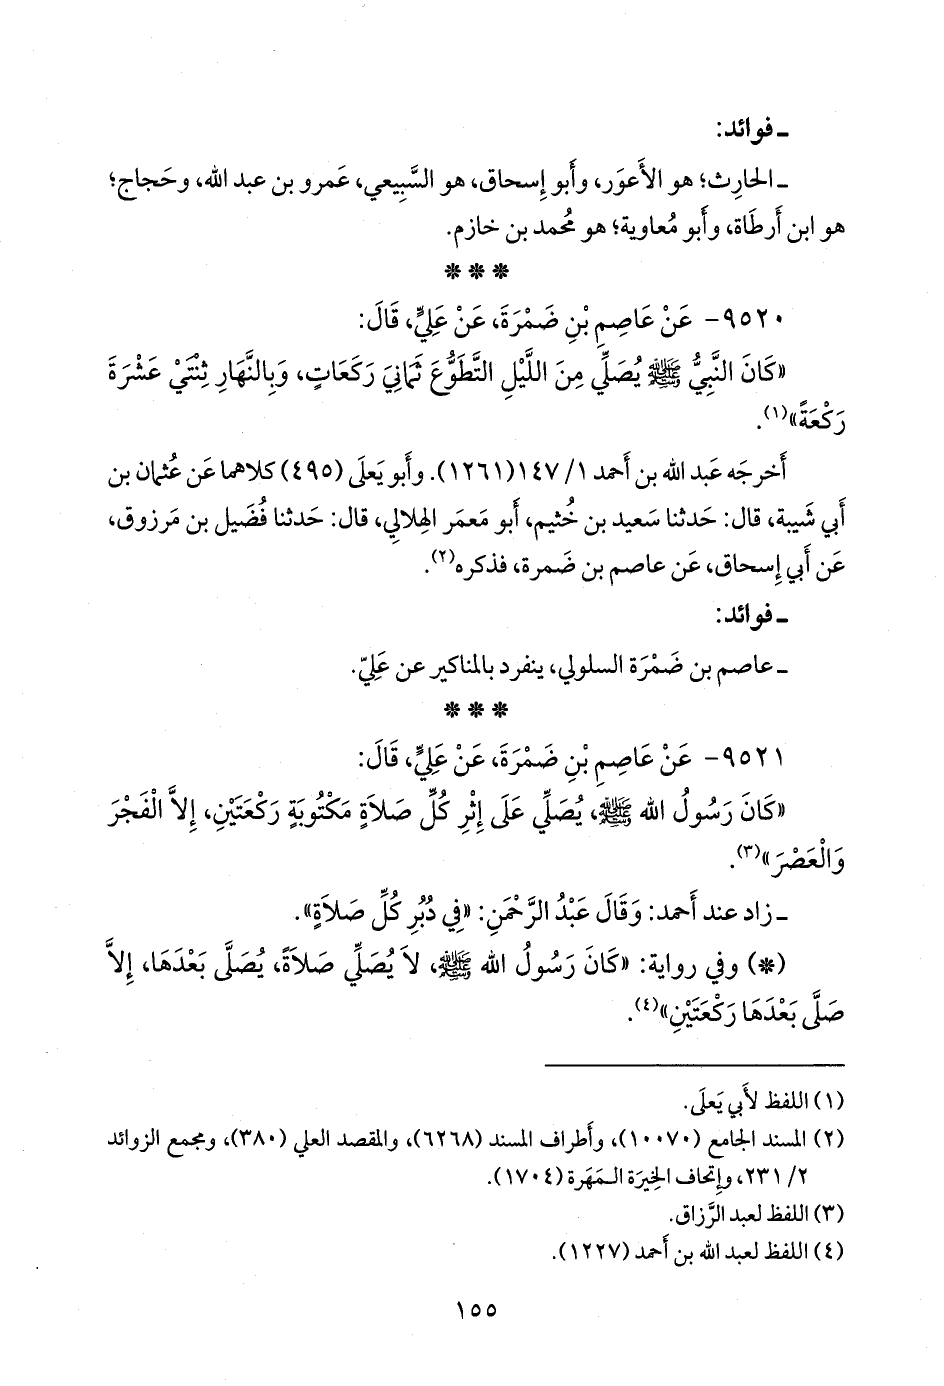 ـ فوائد:
ـ الحارِث؛ هو الأَعوَر، وأَبو إِسحاق، هو السَّبِيعي، عَمرو بن عبد الله، وحَجاج؛
هو ابن أَرطَاة، وأَبو مُعاوية؛ هو مُحمد بن خازم.
* * *
٩٥٢٠- عَنْ عَاصِمِ بْنِ ضَمْرَةَ، عَنْ عَلِيٍّ، قَالَ:
«كَانَ النَّبِيُّ ﷺ يُصَلِّي مِنَ اللَّيْلِ التَّطَوُّعَ ثَمَانِيَ رَكَعَاتٍ، وَبِالنَّهَارِ ثِنْتَيْ عَشْرَةَ
رَكْعَةً»(١).
أَخرجَه عَبد الله بن أَحمد ١/ ١٤٧(١٢٦١). وأَبو يَعلَى (٤٩٥) كلاهما عَن عُثمان بن
أَبي شَيبة، قال: حَدثنا سَعيد بن خُثيم، أَبو مَعمَر الهِلالي، قال: حَدثنا فُضَيل بن مَرزوق،
عَن أَبي إِسحاق، عَن عاصم بن ضَمرة، فذكره(٢).
ـ فوائد:
ـ عاصم بن ضَمْرَة السلولي، ينفرد بالمناكير عن عَلِيّ.
* * *
٩٥٢١- عَنْ عَاصِمِ بْنِ ضَمْرَةَ، عَنْ عَلِيٍّ، قَالَ:
«كَانَ رَسُولُ الله ﷺ، يُصَلِّي عَلَى إِثْرِ كُلِّ صَلاَةٍ مَكْتُوبَةٍ رَكْعَتَيْنِ، إِلاَّ الْفَجْرَ
وَالْعَصْرَ»(٣).
ـ زاد عند أَحمد: وَقَالَ عَبْدُ الرَّحْمَنِ: «فِي دُبُرِ كُلِّ صَلاَةٍ».
(*) وفي رواية: «كَانَ رَسُولُ الله ﷺ، لاَ يُصَلِّي صَلاَةً، يُصَلَّى بَعْدَهَا، إِلاَّ
صَلَّى بَعْدَهَا رَكْعَتَيْنِ»(٤).
(١) اللفظ لأَبي يَعلَى.
(٢) المسند الجامع (١٠٠٧٠)، وأَطراف المسند (٦٢٦٨)، والمقصد العلي (٣٨٠)، ومجمع الزوائد
٢/ ٢٣١، وإِتحاف الخِيرَة المَهَرة (١٧٠٤).
(٣) اللفظ لعبد الرَّزاق.
(٤) اللفظ لعبد الله بن أَحمد (١٢٢٧).
١٥٥